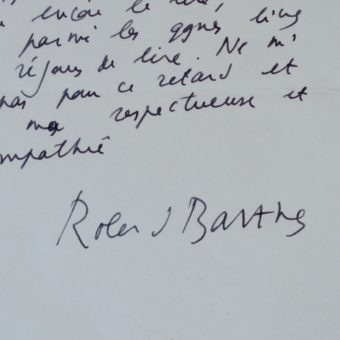 encore le
parmi les qques livres
réjouis de lire. Ne m'
pas pour ce retard et
ma respectueuse et
mpathie
Roland Barthes